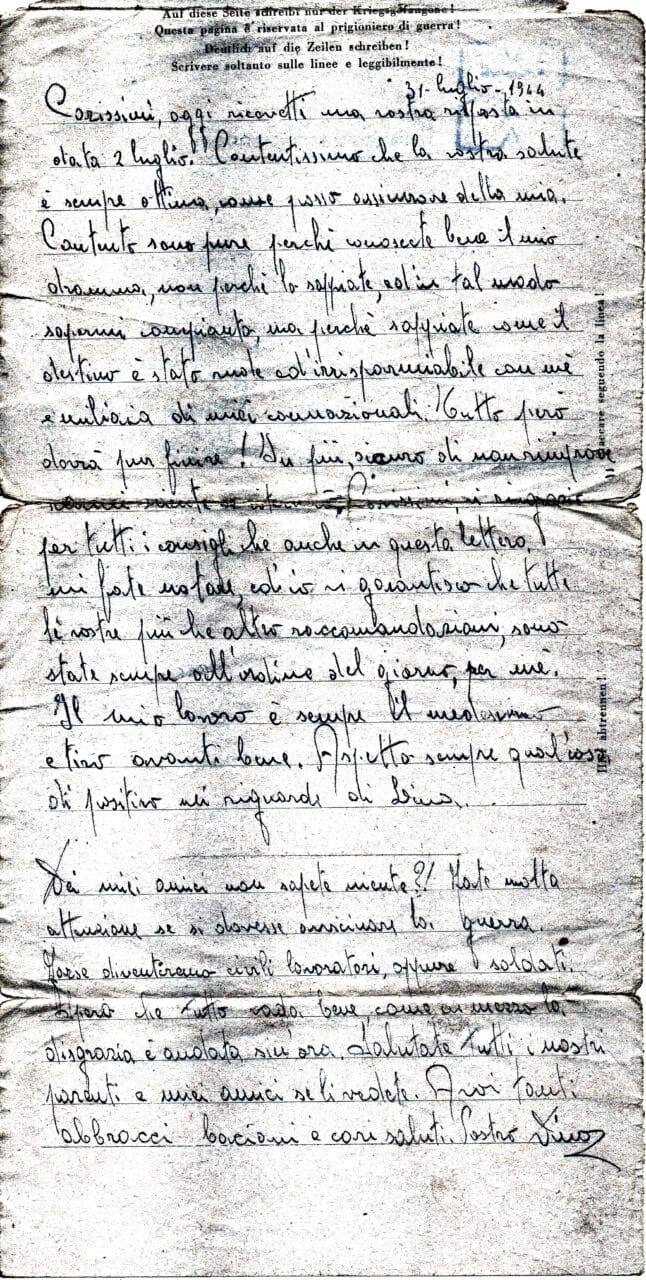 Auf diese Seite schreibt nur der Kriegsgefangene!
Questa pagina è riservata al prigioniero di guerra!
Deutlich auf die Zeilen schreiben!
Scrivere soltanto sulle linee e leggibilmente!
31-luglio-1944
Carissimi, oggi ricevetti una vostra risposta in
data 2 luglio. Contentissimo che la vostra salute
è sempre ottima, come posso assicurare della mia.
Contento sono pure perchè conoscete bene il mio
dramma, non perchè lo sappiate, ed'in tal modo
sapermi compianto, ma perchè sappiate come il
destino è stato ed'irrisparmiabile con mè
e migliaia di miei connazionali. Tutto però
dovrà pur finire! In più, sicuro di non
niente Carissimi, vi ringrazio
per tutti i consigli che anche in questa lettera,
mi fate notare, ed'io vi garantisco che tutte
le vostre più che altro raccomandazioni, sono
state sempre all'ordine del giorno, per mè.
Il mio lavoro è sempre il medesimo
e tiro avanti bene. Aspetto sempre qualcosa
di positivo nei riguardi di
Dei miei amici non sapete niente?! Fate molta
attenzione se si dovesse avvicinare la guerra.
Forse diventeremo civili lavoratori, oppure soldati.
Spero che tutto vada bene come in mezzo la
disgrazia è andata sin'ora. Salutate tutti i nostri
parenti e miei amici se li vedete. A voi tanti
abbracci bacioni e cari saluti. Vostro Dino
staccare seguendo la linea!
Hier abtrennen!